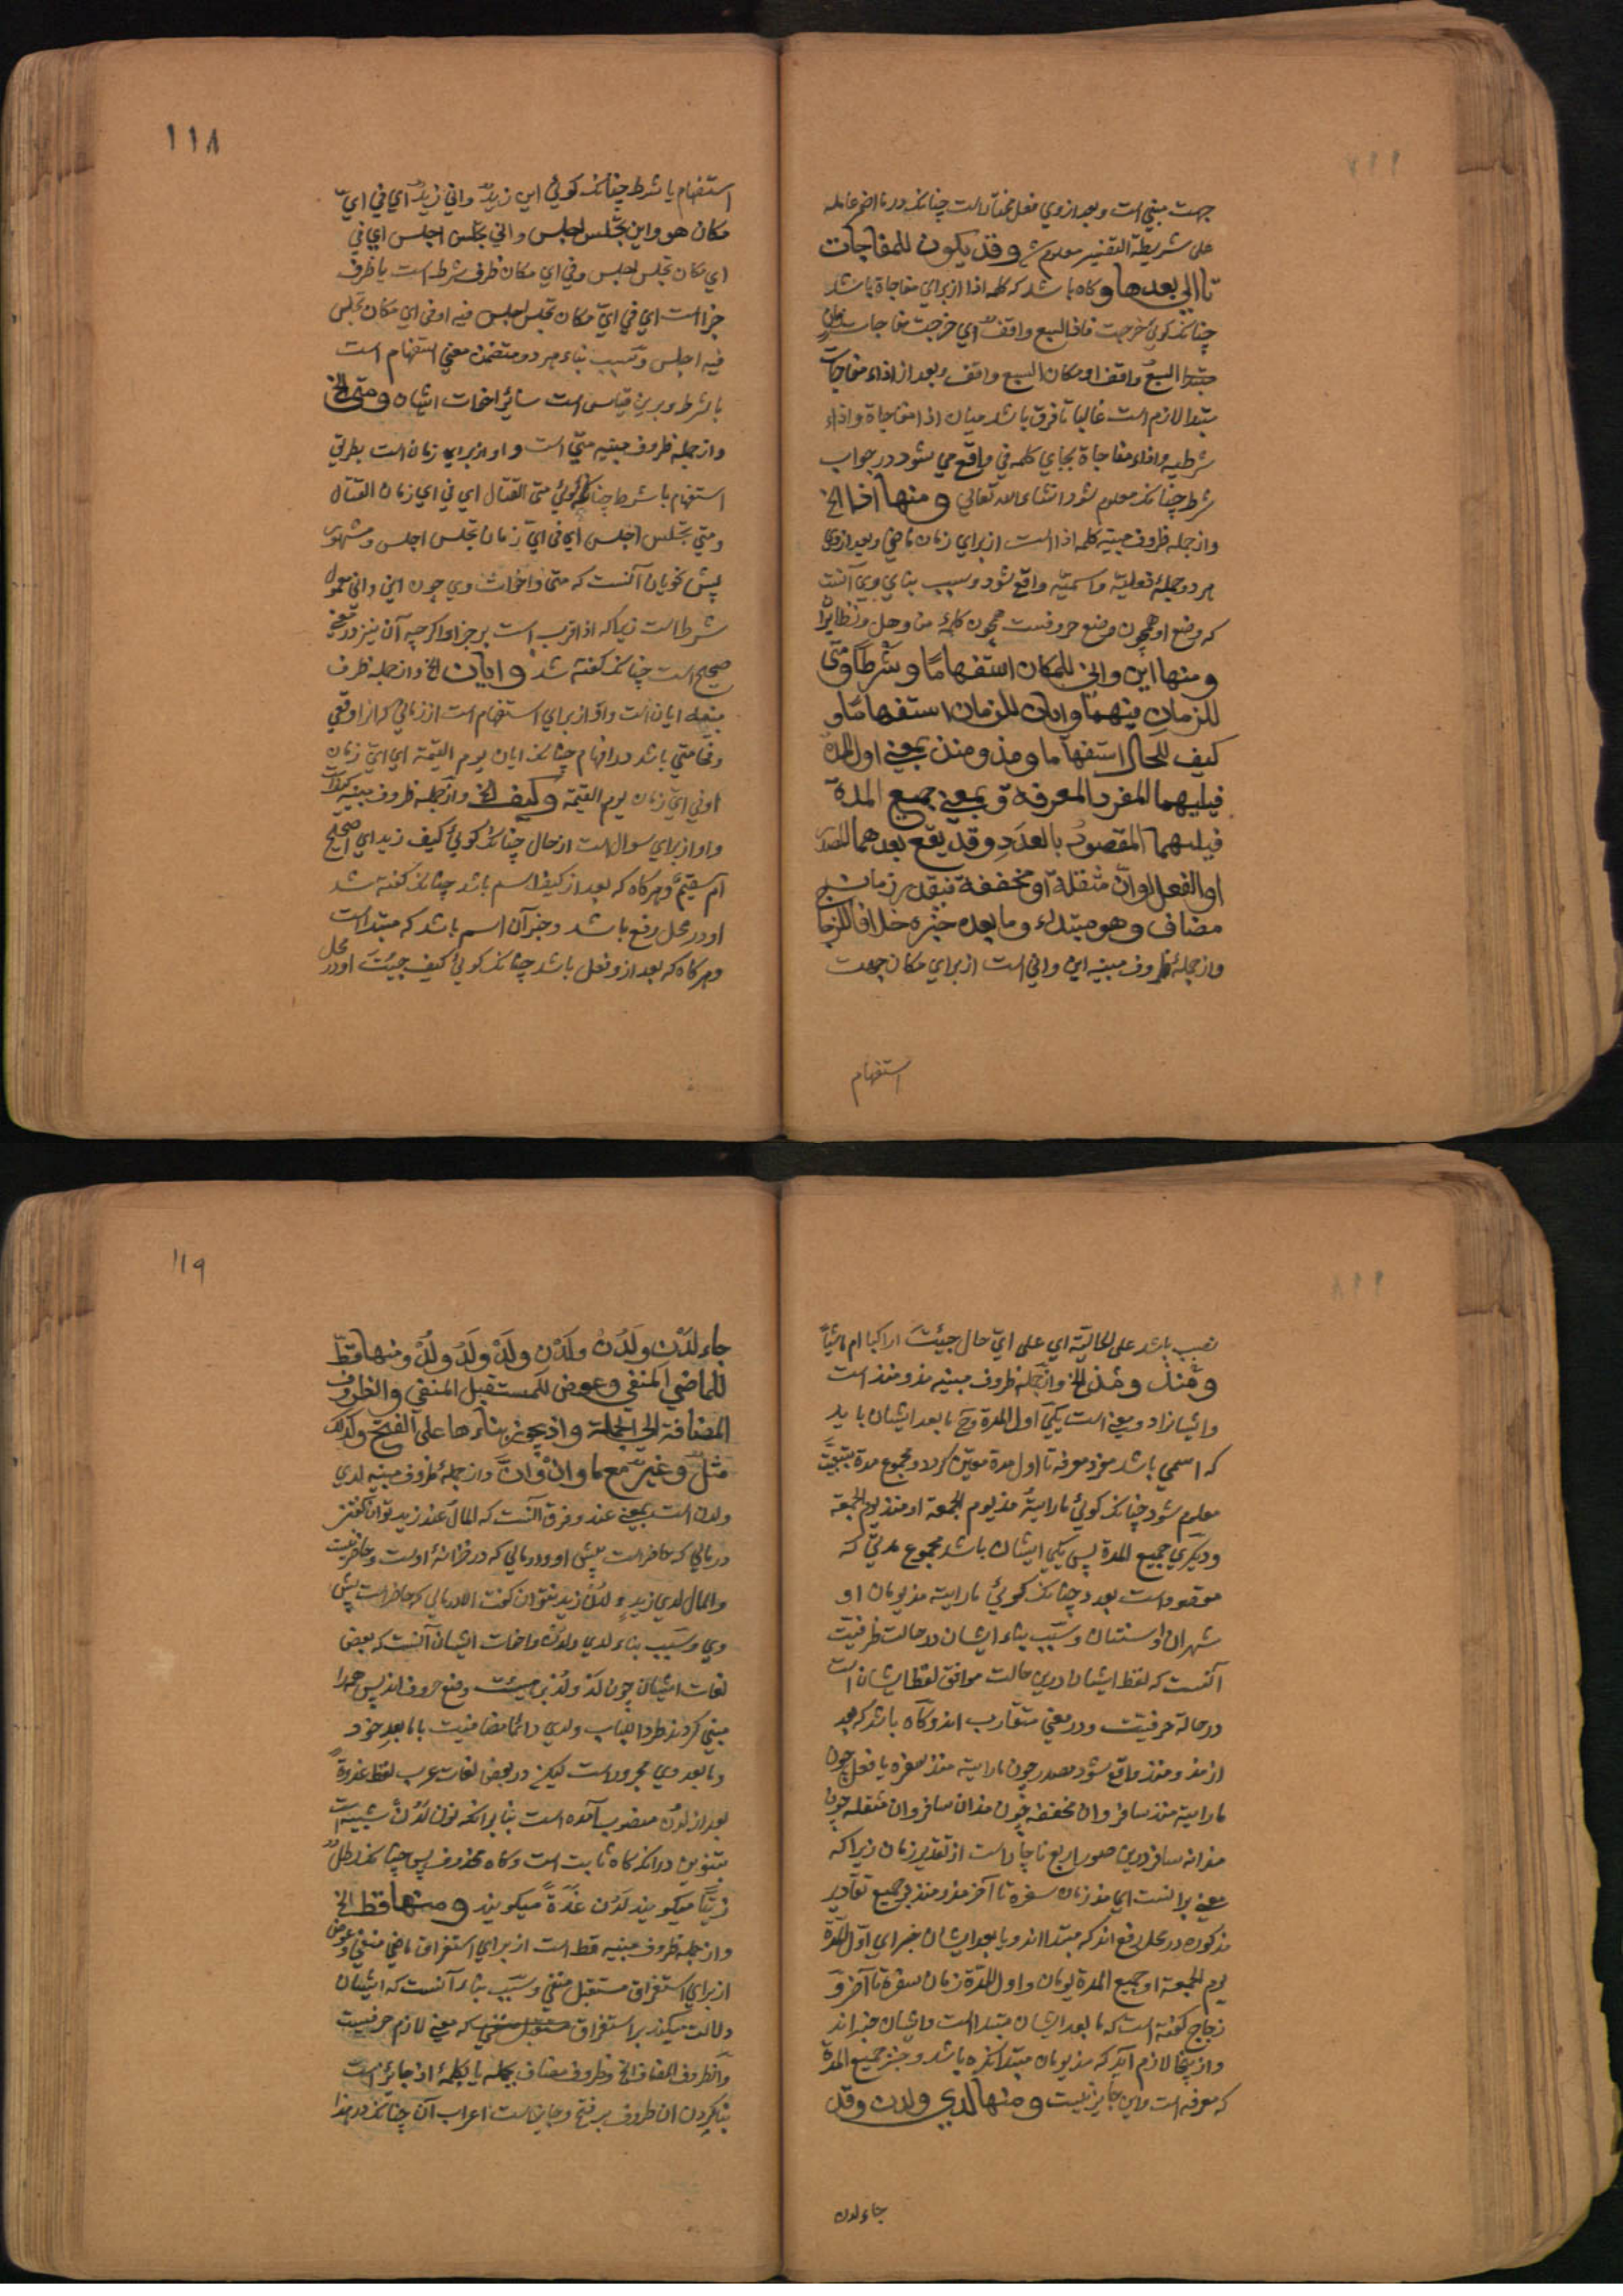 جهت مبنی است و بعد از وی فعل مختار است چنانکه در ما اضمر عامله
علی شریطة التفسیر معلوم شد وقد یکون للمفاجات
بعدها و گاه باشد که کلمه اذا از برای مفاجاة باشد
چنانکه گوئی خرجت فاذا السبع واقف ای خرجت مفاجات زمان
السبع واقف او مکان السبع واقف و بعد از اذاء مفاجات
مبتدا لازم است غالبا تا فرق باشد میان اذا مفاجاة و اذاء
شرطیه و اذاء مفاجاة بجای کلمه فی واقع می شود در جواب
شرط چنانکه معلوم شود انشاء الله تعالی ومنها اذا الخ
و از جمله ظروف مبنیه کلمه اذا است از برای زمان ماضی و بعد از وی
هر دو جمله فعلیة و اسمیّه واقع شود و سبب بنای وی آنست
که وضع او همچون وضع حروفست همچون کلمهٔ من و هل و نظایر
ومنها این وانی للمکان استفهامًا وشرطًا ومتی
للزمان فیهما وایان للزمان استفهامًا و
کیف للحال استفهاما ومذ ومنذ بمعنی اول المدة
فیلیهما المفرد المعرفة و بمعنی جمیع المدة
فیلیهما المقصود بالعدد وقد یقع بعدهما المصدر
او الفعل او انّ مثقلة او مخففة فیقدر زمان
مضاف وهو مبتداء وما بعده خبره خلافا للزجاج
و از جملهٔ ظروف مبنیه این و انی است از برای مکان جهت
استفهام
۱۱۸
استفهام یا شرط چنانکه گوئی این زیدٌ و انی زیدٌ ای فی ایّ
مکان هو و این تجلس اجلس و انی تجلس اجلس ای فی
ای مکان تجلس اجلس و فی ای مکان ظرف شرط است یا ظرف
جزا است ای فی ایّ مکان تجلس اجلس فیه او فی ای مکان تجلس
فیه اجلس و سبب بناء هر دو متضمن معنی استفهام است
یا شرط و برین قیاس است سائر اخوات ایشان ومتی الخ
و از جمله ظروف مبنیه متی است و او از برای زمان است بطریق
استفهام یا شرط چنانکه گوئی متی القتال ای فی ای زمان القتال
و متی تجلس اجلس ای فی ایّ زمان تجلس اجلس و مشهور
پیش نحویان آنست که متی و اخوات وی چون این و انی معمول
شرط است زیرا که اذا قریب است بر جزا و اگر چه آن نیز در معنی
صحیح است چنانکه گفته شد وایان الخ و از جمله ظرف
مبنیه ایان است و او از برای استفهام است از زمانی
متی باشد در افهام چنانکه ایان یوم القیمة ای ایّ زمان
او فی ایّ زمان یوم القیمة وکیف الخ و از جمله ظروف مبنیه
و او از برای سوال است از حال چنانکه گوئی کیف زید ای اصحیح
ام سقیمٌ و هر گاه که بعد از کیف اسم باشد چنانکه گفته شد
او در محل رفع باشد و خبر آن اسم باشد که مبتدا است
و هر گاه که بعد از و فعل باشد چنانکه گوئی کیف جیئت او در محل
نصب باشد علی الحالیّة ای علی ایّ حال جیئت اراکبا ام ماشیًا
ومنذ ومذ الخ و از جمله ظروف مبنیه مذ و منذ است
و ایشانرا دو معنی است یکی اول المدة و ح ما بعد ایشان باید
که اسمی باشد مفرد معرفه تا اول مدة معین گردد و مجموع مدة
معلوم شود چنانکه گوئی ما رایتهٗ مذ یوم الجمعة او منذ یوم الجمعة
و دیگری جمیع المدة پس یکی ایشان باشد مجموع مدتی که
مقصود است بعدد چنانکه گوئی ما رایته مذ یومان او
شهران او سنتان و سبب بناء ایشان در حالت ظرفیت
آنست که لفظ ایشان درین حالت موافق لفظ ایشان است
در حالة حرفیت و در معنی متقارب اند و گاه باشد که بعد
از مذ و منذ واقع شود مصدر چون ما رایته منذ سفره یا فعل چون
ما رایته منذ سافر و ان مخففه چون منذ ان سافر و ان مثقله چون
منذ انه سافر درین صور اربع ناچار است از تقدیر زمان زیرا که
معنی برا اینست ای مذ زمان سفره تا آخر مذ و منذ بر جمیع تقادیر
مذکوره در محل رفع اند که مبتدا اند و ما بعد ایشان خبر ای اول المدة
یوم الجمعة او جمیع المدة یومان و اول المدة زمان سفره تا آخر و
زجاج گفته است که ما بعد ایشان مبتدا است و ایشان خبر اند
و از اینجا لازم آید که مذ یومان مبتدا نکره باشد و خبر جمیع المدة
که معرفه است و این جایز نیست ومنها لدی ولدن وقد
جاء لدن
۱۱۹
جاء لَدَنْ ولَدُنْ ولَدْن ولَدْ ولَدُ ولُدْ ومنها قطّ
للماضی المنفی وعوض للمستقبل المنفی والظروف
المضافة الی الجملة واذ یجوز بناؤها علی الفتح وکذلک
مثلُ وغیرُ مع ما وانْ وانّ و از جملهٔ ظروف مبنیه لدی
و لدن است بمعنی عند و فرق آنست که المال عند زید توان گفتن
در مالی که حاضر است پیش او و در مالی که در خزانهٔ اوست و حاضر نیست
و المال لدی زیدٍ و لدن زید نتوان گفت الا در مالی که حاضر است پیش
وی و سبب بناء لدی و لدن و اخوات ایشان آنست که بعض
لغات ایشان چون لَدْ و لُدْ بر هیئت وضع حروف اند پس همه را
مبنی کردند طردا للباب و لدی دائما مضافست با ما بعد خود
و ما بعد وی مجرور است لیکن در بعض لغات عرب لفظ غدوةً
بعد از لدن منصوب آمده است بنا بر آنکه نون لَدُنْ شبیه است
بتنوین در آنکه گاه ثابت است و گاه محذوف پس چنانکه رطلٌ
زیتًا میگویند لَدُن غدوةً میگویند ومنها قط الخ
و از جمله ظروف مبنیه قط است از برای استغراق ماضی منفی و عوض
از برای استغراق مستقبل منفی و سبب بناء آنست که ایشان
دلالت میکنند بر استغراق مستقبل منفی که معنی لازم حرفیست
و الظروف المضاف الخ و ظروف مضاف بجمله یا بکلمهٔ اذ جائز است
بنا کردن ان ظروف بر فتح و جایز است اعراب آن چنانکه در هذا